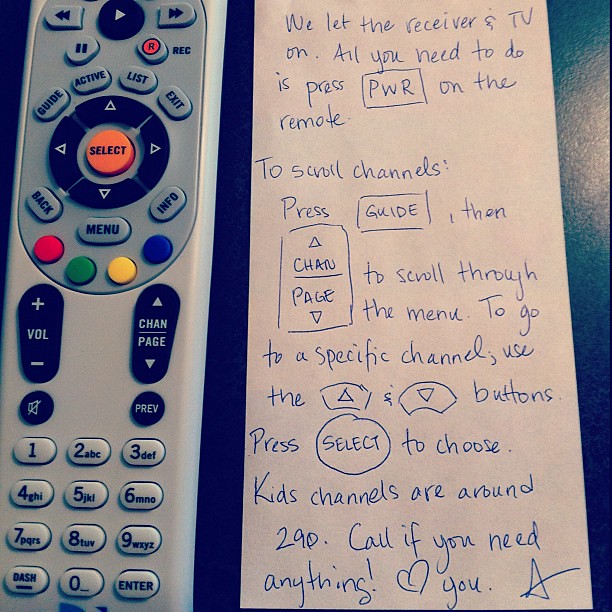 REC
ACTIVE
LIST
GUIDE
EXIT
SELECT
BACK
INFO
MENU
+
VOL
−
CHAN
PAGE
PREV
1 2abc 3def
4ghi 5jkl 6mno
7pqrs 8tuv 9wxyz
DASH 0 ENTER
We let the receiver & TV
on. All you need to do
is press PWR on the
remote.
To scroll channels:
Press GUIDE, then
CHAN
PAGE
to scroll through
the menu. To go
to a specific channel, use
the △ & ▽ buttons.
Press SELECT to choose.
Kids channels are around
290. Call if you need
anything! ♡ you. A